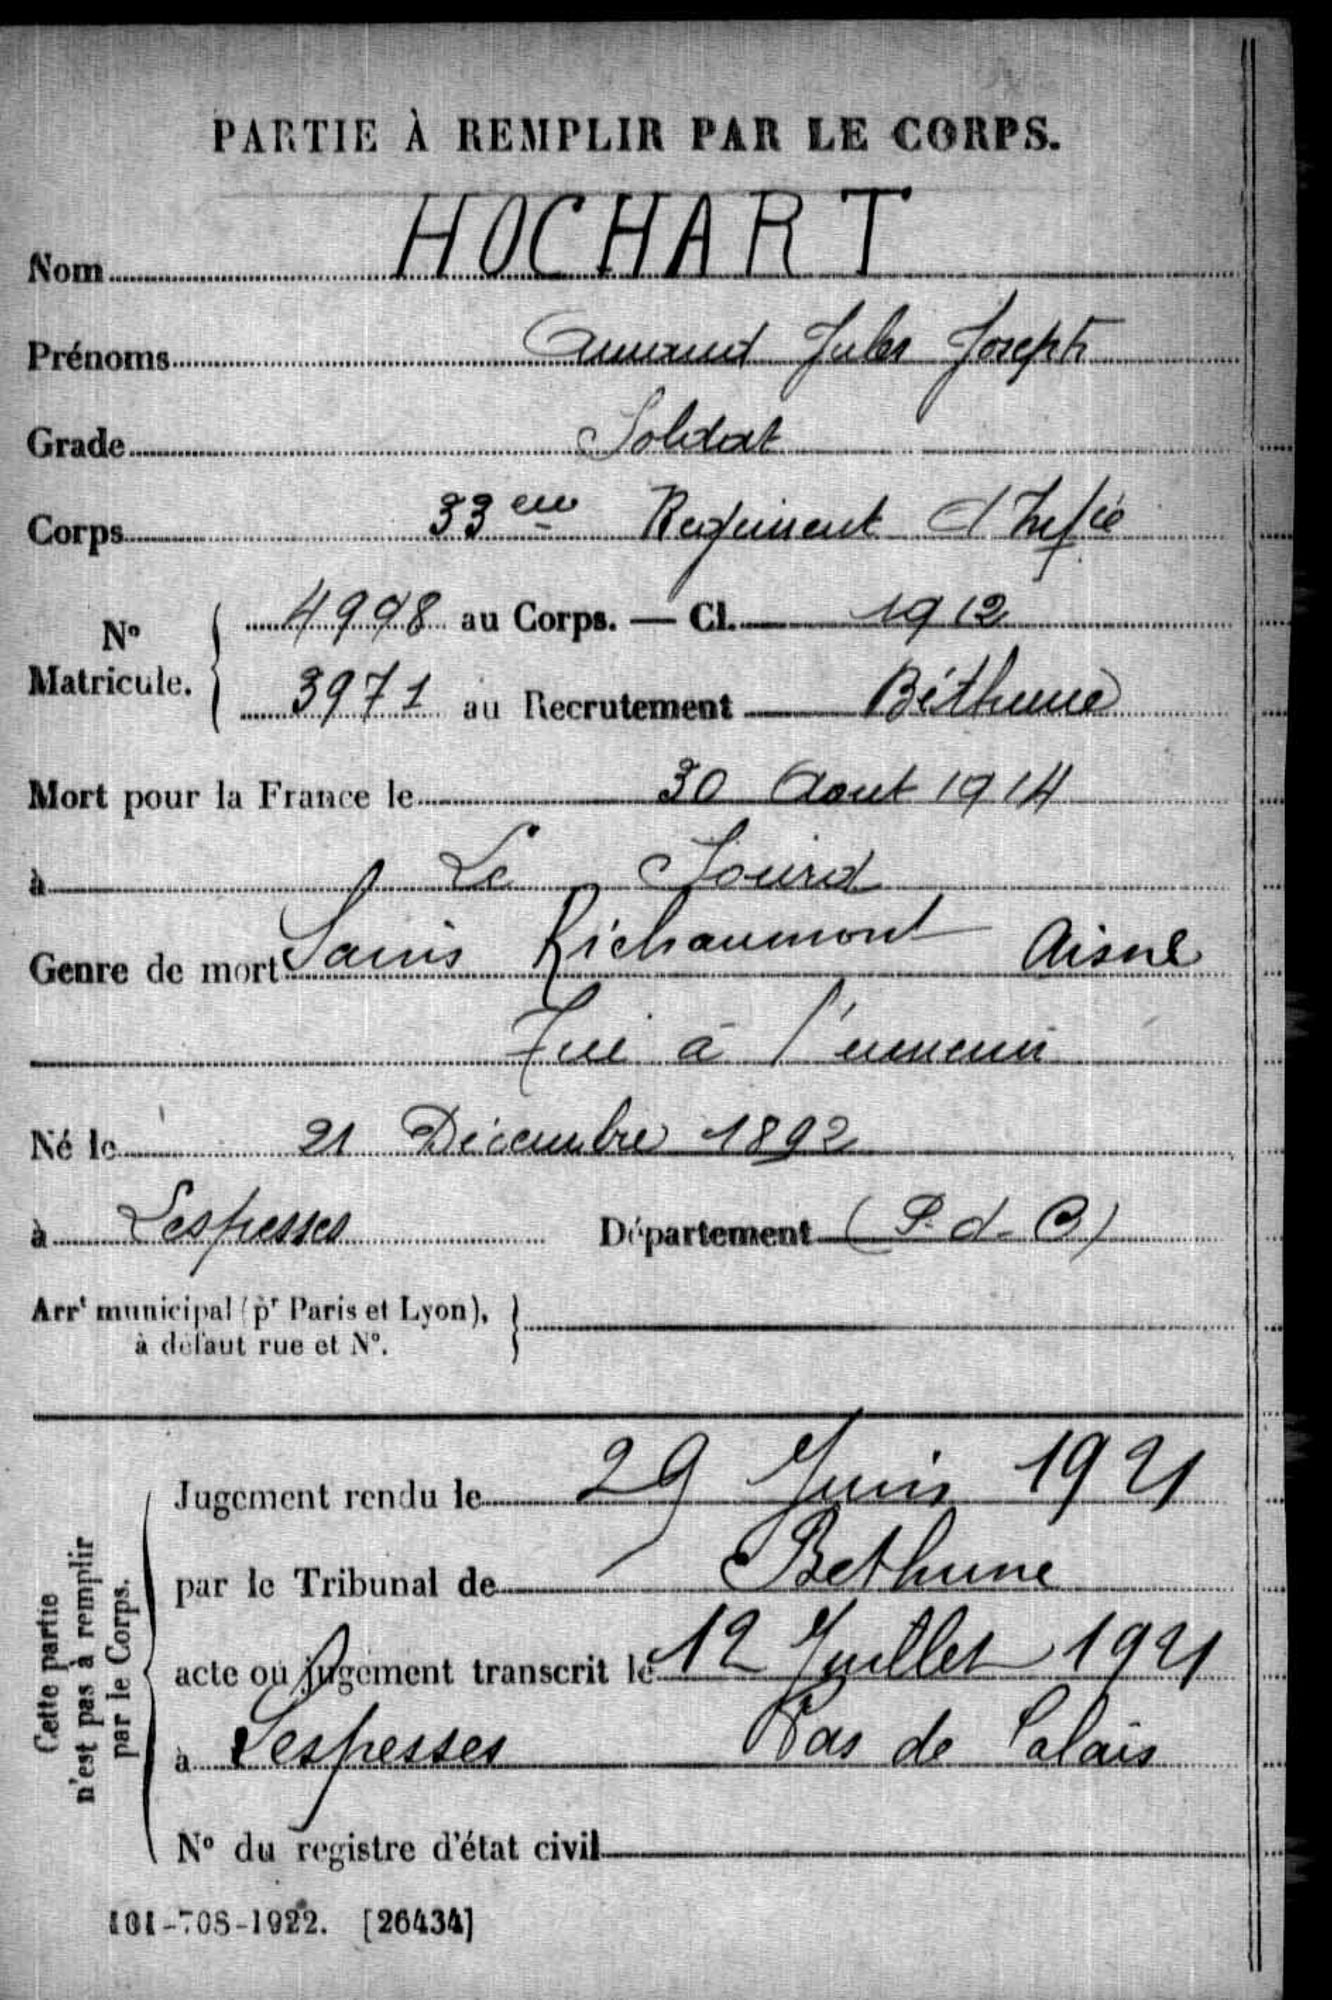 PARTIE À REMPLIR PAR LE CORPS.
Nom HOCHART
Prénoms Armand Jules Joseph
Grade Soldat
Corps 33em Regiment d'Infie
No Matricule. 4998 au Corps. — Cl. 1912
3971 au Recrutement Béthune
Mort pour la France le 30 Aout 1914
à Le Sourd
Genre de mort Sains Richaumont Aisne
Tué à l'ennemi
Né le 21 Décembre 1892
à Lespesses Département (P-d-C)
Arrt municipal (pr Paris et Lyon),
à défaut rue et N°.
Cette partie n'est pas à remplir par le Corps.
Jugement rendu le 29 Juin 1921
par le Tribunal de Bethune
acte ou jugement transcrit le 12 Juillet 1921
à Lespesses Pas de Calais
N° du registre d'état civil
101-708-1922. [26434]